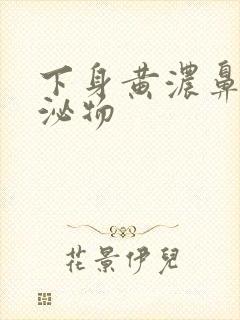 下身黄濃鼻
泌物
花景伊兒